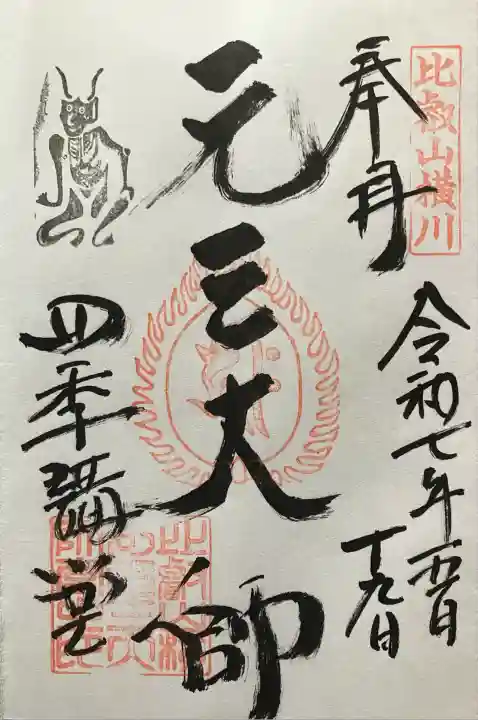 比叡山横川
奉拝
令和七年
十九日
元三大師
四季講堂